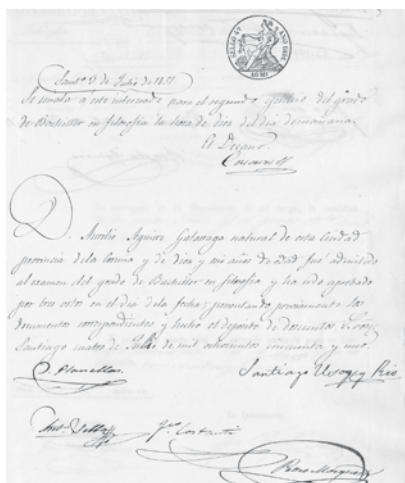 Santo 3 de Julio de 1851
Se señala a este interesado para el segundo ejercicio del grado
de Bachiller en filosofia la hora de diez del dia de mañana.
El Decano
D. Aurelio Aguirre Galarraga natural de esta Ciudad
provincia de la Coruña y de diez y seis años de edad fué admitido
al examen del grado de Bachiller en filosofia, y ha sido aprobado
por tres votos en el dia de la fecha; presentando previamente los
documentos correspondientes y hecho el deposito de doscientos
Santiago cuatro de Julio de mil ochocientos cincuenta y uno
Planellas
Santiago Usoz y Rio
Costanti